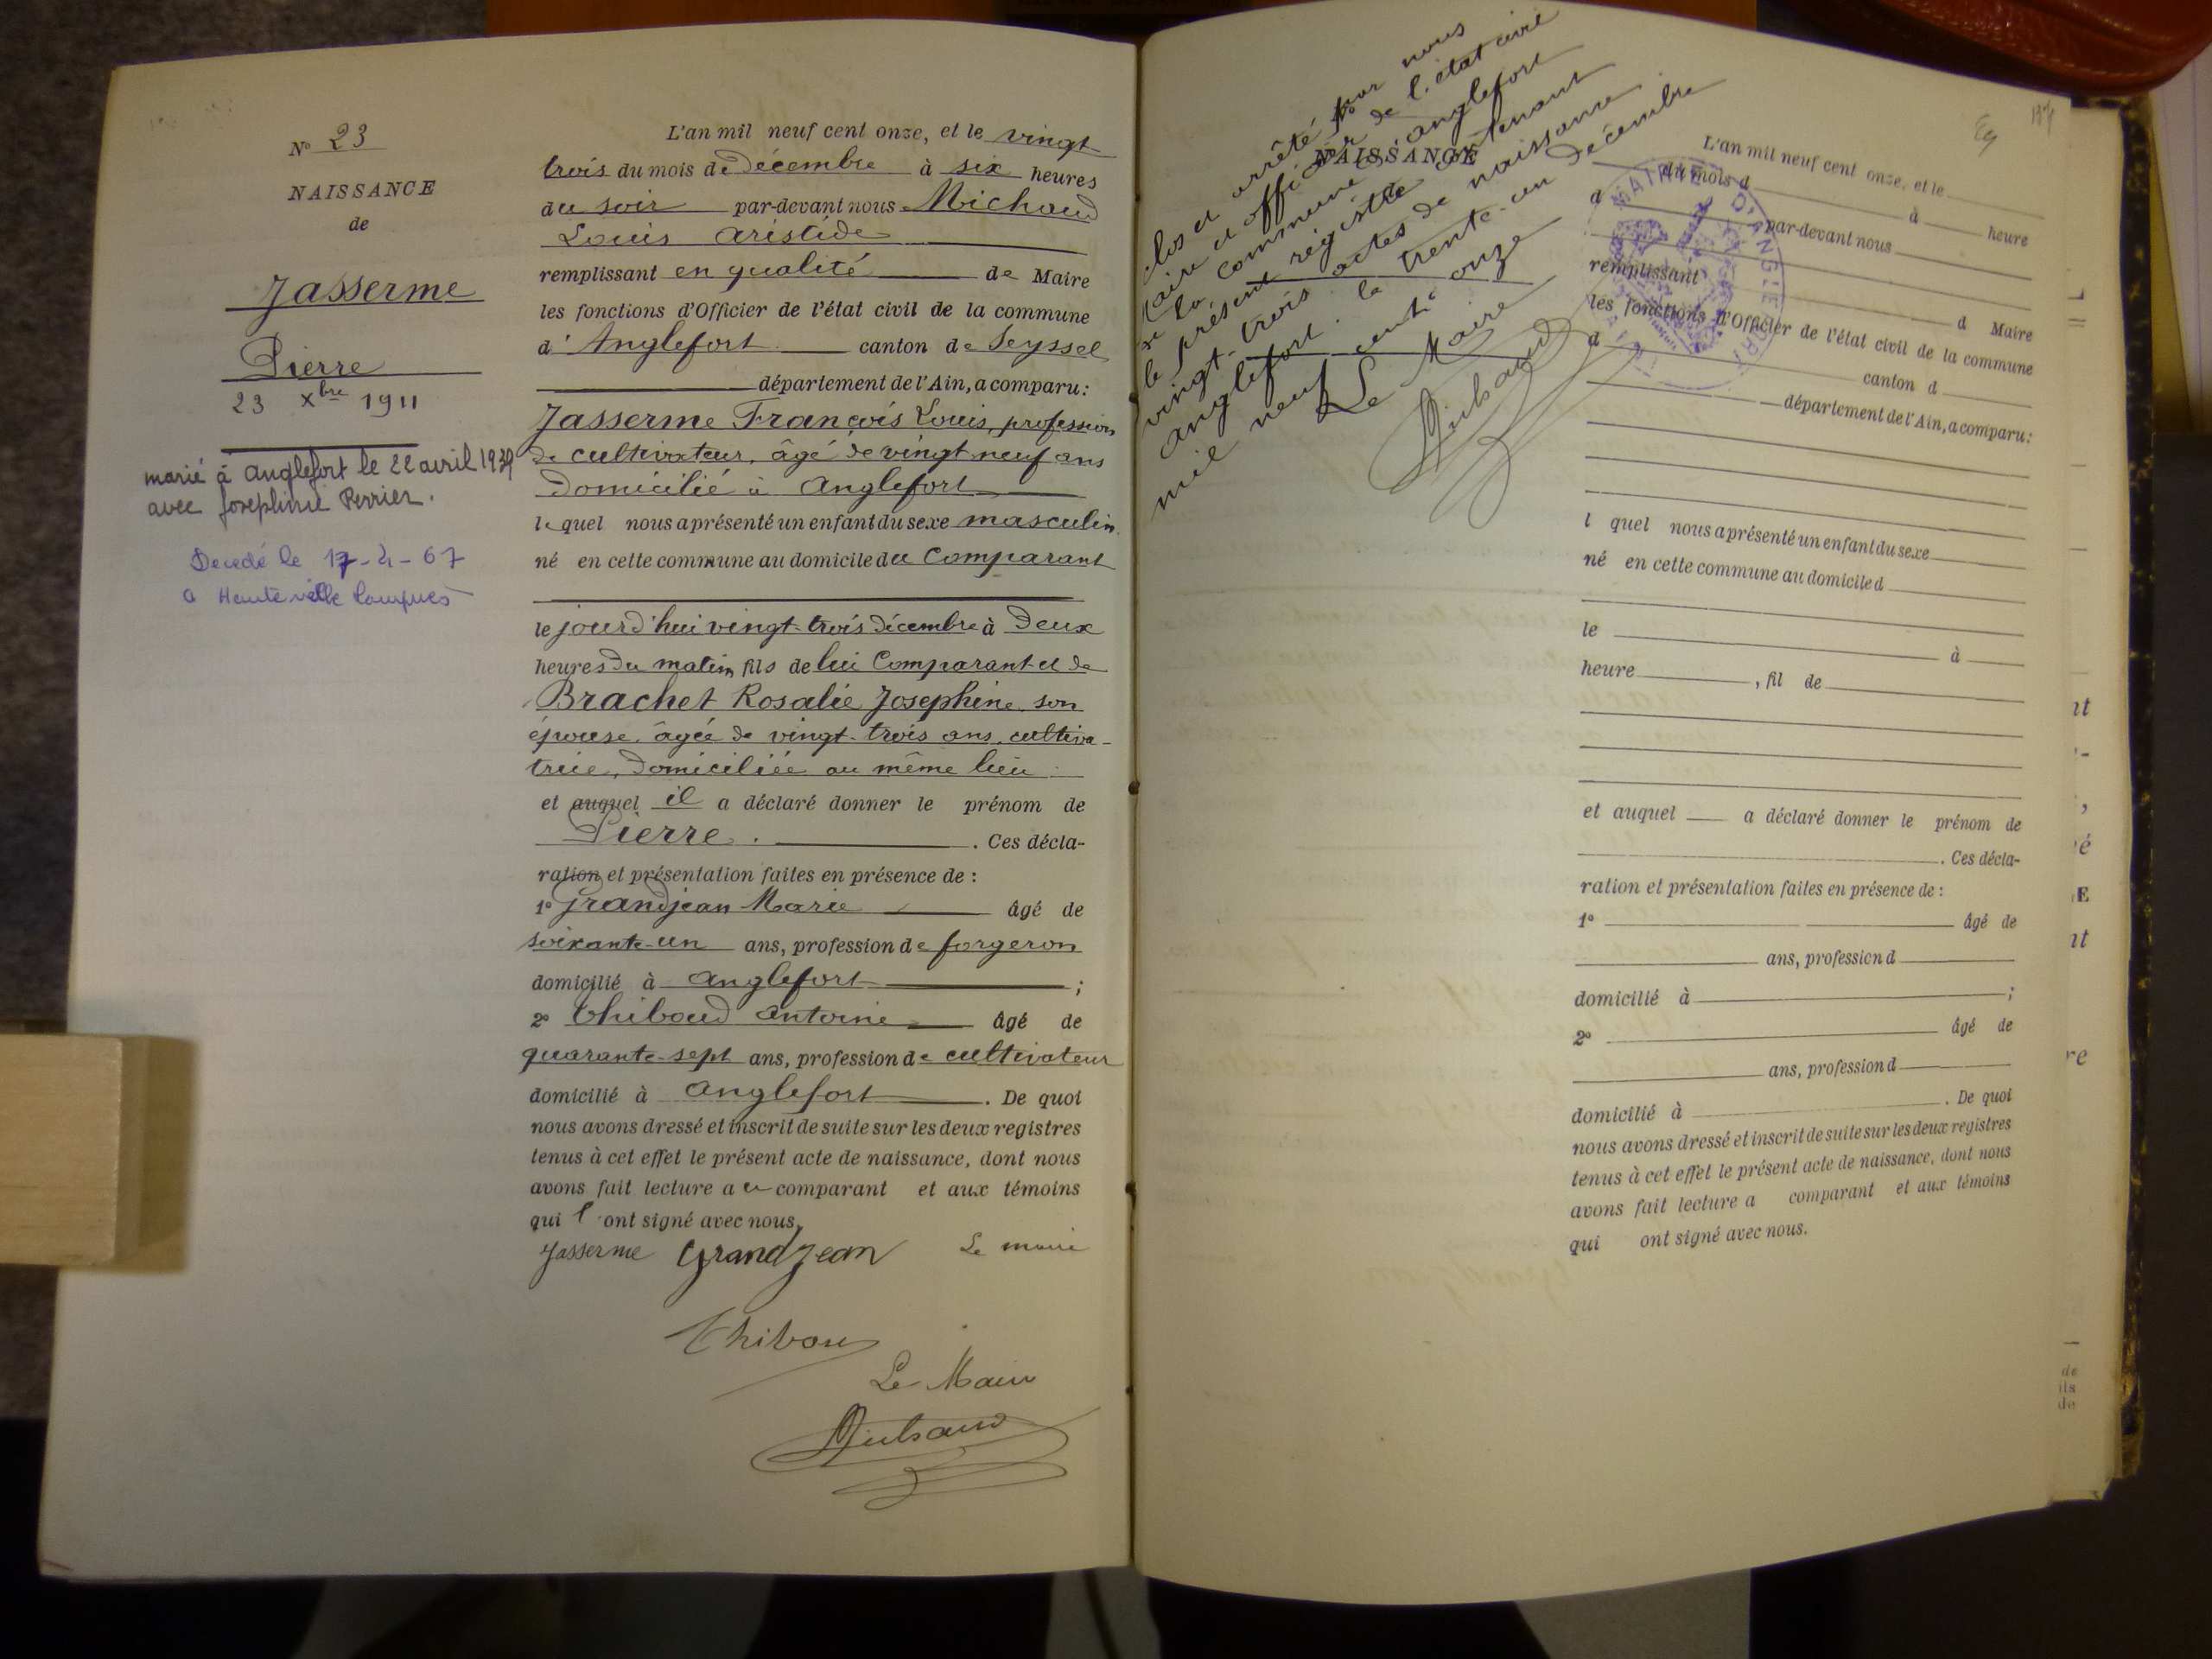 N° 23
NAISSANCE
de
Jasserme
Pierre
23 Xbre 1911
marié à Anglefort le 22 avril 1939
avec Joséphine Perrier.
Décédé le 17-4-67
a Hauteville Lompnes
L'an mil neuf cent onze, et le vingt
trois du mois de décembre à six heures
du soir par-devant nous Michaud
Louis Aristide
remplissant en qualité de Maire
les fonctions d'Officier de l'état civil de la commune
d'Anglefort canton de Seyssel
département de l'Ain, a comparu:
Jasserme François Louis, profession
de cultivateur, âgé de vingt neuf ans
domicilié à Anglefort
lequel nous a présenté un enfant du sexe masculin
né en cette commune au domicile du comparant
le jourd'hui vingt-trois décembre à deux
heures du matin, fils de lui Comparant et de
Brachet Rosalie Josephine son
épouse âgée de vingt-trois ans, cultiva-
trice, domiciliée au même lieu
et auquel il a déclaré donner le prénom de
Pierre. . Ces décla-
ration et présentation faites en présence de :
1° Grandjean Marie âgé de
soixante-un ans, profession de forgeron
domicilié à Anglefort ;
2° Thiboud Antoine âgé de
quarante-sept ans, profession de cultivateur
domicilié à Anglefort . De quoi
nous avons dressé et inscrit de suite sur les deux registres
tenus à cet effet le présent acte de naissance, dont nous
avons fait lecture au comparant et aux témoins
qui l'ont signé avec nous.
Jasserme Grandjean Le maire
Thiboud
Le Maire
Michaud
clos et arrêté par nous
Maire et officier de l'état civil
de la commune d'Anglefort
le présent régistre contenant
vingt-trois actes de naissance
Anglefort le trente-un décembre
mil neuf cent onze
Le Maire
Michaud
NAISSANCE
de
MAIRIE D'ANGLEFORT
L'an mil neuf cent onze, et le
du mois d à heure
d par-devant nous
remplissant d Maire
les fonctions d'Officier de l'état civil de la commune
d canton d
département de l'Ain, a comparu:
l quel nous a présenté un enfant du sexe
né en cette commune au domicile d
le à
heure , fil de
et auquel a déclaré donner le prénom de
. Ces décla-
ration et présentation faites en présence de :
1° âgé de
ans, profession d
domicilié à ;
2° âgé de
ans, profession d
domicilié à . De quoi
nous avons dressé et inscrit de suite sur les deux registres
tenus à cet effet le présent acte de naissance, dont nous
avons fait lecture a comparant et aux témoins
qui ont signé avec nous.